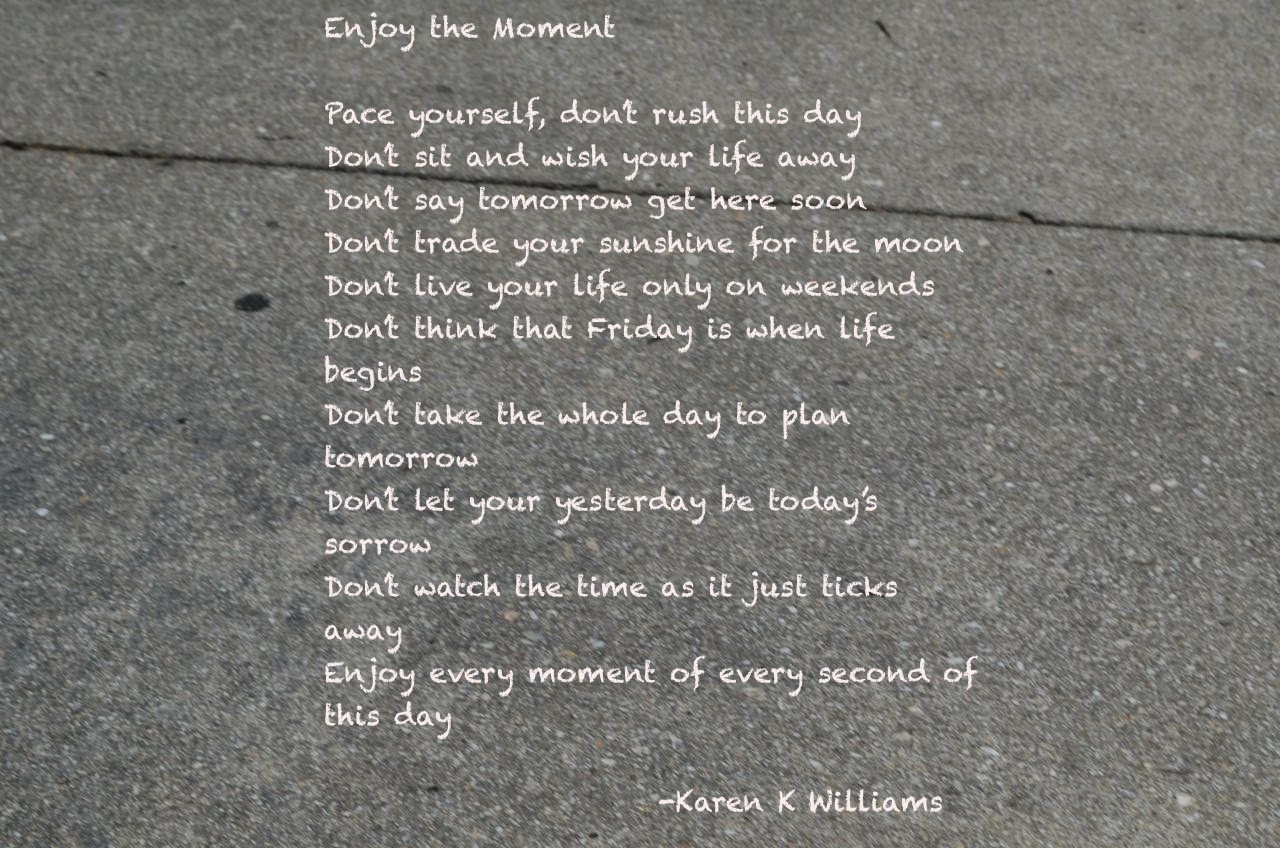 Enjoy the Moment
Pace yourself, don't rush this day
Don't sit and wish your life away
Don't say tomorrow get here soon
Don't trade your sunshine for the moon
Don't live your life only on weekends
Don't think that Friday is when life
begins
Don't take the whole day to plan
tomorrow
Don't let your yesterday be today's
sorrow
Don't watch the time as it just ticks
away
Enjoy every moment of every second of
this day
-Karen K Williams